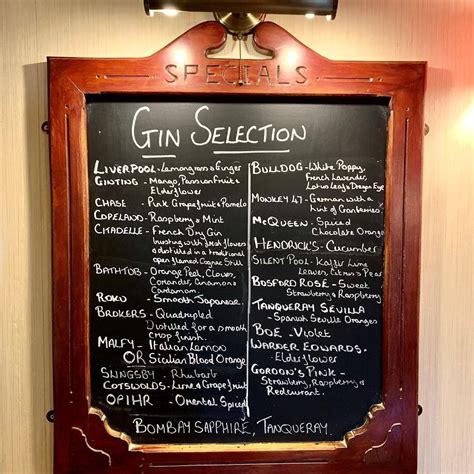 SPECIALS
GIN SELECTION
LIVERPOOL - Lemongrass & Ginger
GINTING - Mango, Passion Fruit &
Elderflower
CHASE - Pink Grapefruit & Pomelo
COPELAND - Raspberry & Mint
CITADELLE - French Dry Gin
bursting with fresh flavors
& distilled in a traditional
open flamed Cognac Still
BATHTUB - Orange Peel, Cloves,
Coriander, Cinnamon &
Cardamom.
ROKU - Smooth Japanese.
BROKERS - Quadrupled
Distilled for a smooth
crisp finish.
MALFY - Italian Lemon
OR Sicilian Blood Orange
SLINGSBY - Rhubarb
COTSWOLDS - Lime & Grapefruit
OPIHR - Oriental Spiced
BULLDOG - White Poppy,
French Lavender,
Lotus Leaf & Dragon Eye
MONKEY 47 - German with a
hint of Cranberries
McQUEEN - Spiced
Chocolate Orange
HENDRICK'S - Cucumber
SILENT POOL - Kaffir Lime
Leaves, Citrus & Pear
BOSFORD ROSÉ - Sweet
Strawberry & Raspberry
TANQUERAY SEVILLA
- Spanish Seville Oranges
BOE - Violet
WARNER EDWARDS.
- Elderflower
GORDON'S PINK -
Strawberry, Raspberry &
Redcurrant.
BOMBAY SAPPHIRE, TANQUERAY.